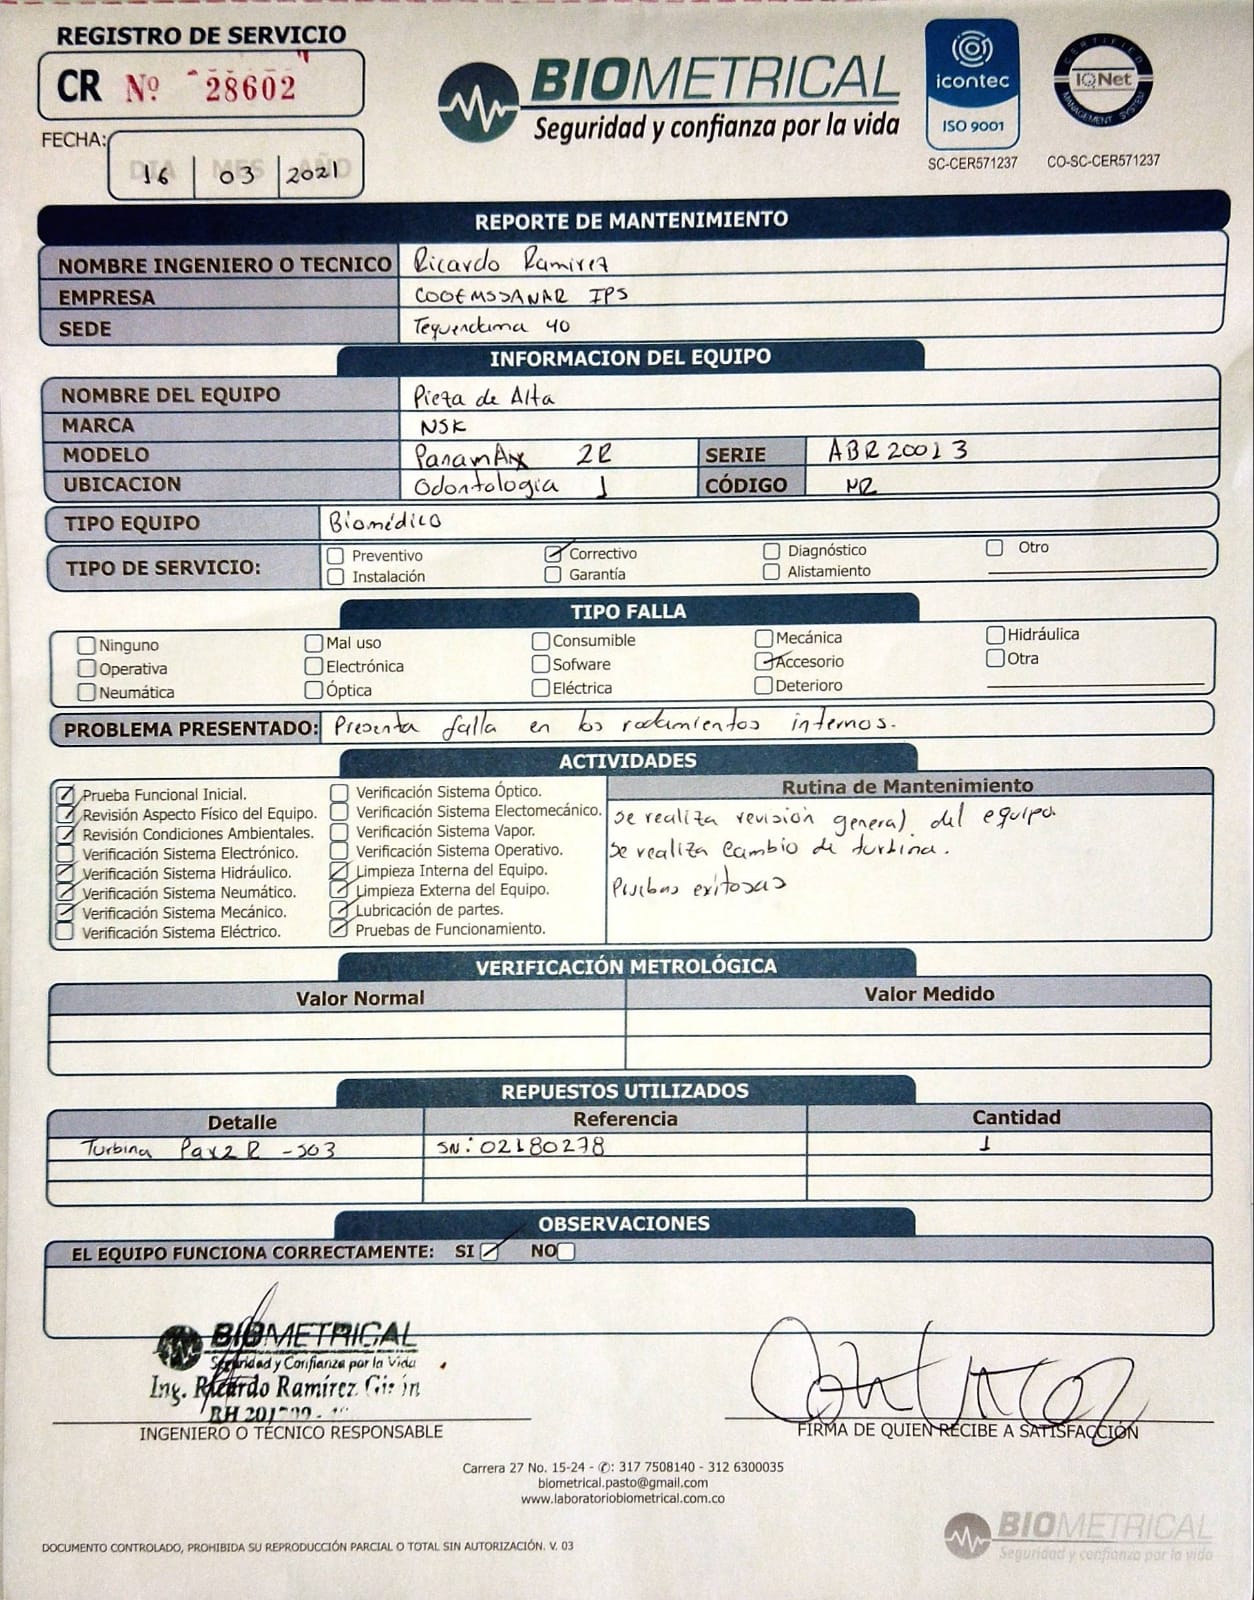 REGISTRO DE SERVICIO
CR Nº 28602
FECHA:
DIA MES AÑO
16 03 2021
BIOMETRICAL
Seguridad y confianza por la vida
icontec
ISO 9001
SC-CER571237
CERTIFIED
IQNet
MANAGEMENT SYSTEM
CO-SC-CER571237
REPORTE DE MANTENIMIENTO
NOMBRE INGENIERO O TECNICO Ricardo Ramirez
EMPRESA COOEMSSANAR IPS
SEDE Tequendama 40
INFORMACION DEL EQUIPO
NOMBRE DEL EQUIPO Pieza de Alta
MARCA NSK
MODELO PanamAx 2R SERIE ABR20013
UBICACION Odontologia 1 CÓDIGO NR
TIPO EQUIPO Biomédico
TIPO DE SERVICIO:
Preventivo Correctivo Diagnóstico Otro
Instalación Garantía Alistamiento
TIPO FALLA
Ninguno Mal uso Consumible Mecánica Hidráulica
Operativa Electrónica Sofware Accesorio Otra
Neumática Óptica Eléctrica Deterioro
PROBLEMA PRESENTADO: Presenta falla en los rodamientos internos.
ACTIVIDADES
Prueba Funcional Inicial.
Revisión Aspecto Físico del Equipo.
Revisión Condiciones Ambientales.
Verificación Sistema Electrónico.
Verificación Sistema Hidráulico.
Verificación Sistema Neumático.
Verificación Sistema Mecánico.
Verificación Sistema Eléctrico.
Verificación Sistema Óptico.
Verificación Sistema Electomecánico.
Verificación Sistema Vapor.
Verificación Sistema Operativo.
Limpieza Interna del Equipo.
Limpieza Externa del Equipo.
Lubricación de partes.
Pruebas de Funcionamiento.
Rutina de Mantenimiento
se realiza revisión general del equipo.
se realiza cambio de turbina.
Pruebas exitosas
VERIFICACIÓN METROLÓGICA
Valor Normal Valor Medido
REPUESTOS UTILIZADOS
Detalle Referencia Cantidad
Turbina Pax2R -S03 SN: 02180278 1
OBSERVACIONES
EL EQUIPO FUNCIONA CORRECTAMENTE: SI NO
BIOMETRICAL
Seguridad y Confianza por la Vida
Ing. Ricardo Ramírez
INGENIERO O TÉCNICO RESPONSABLE
FIRMA DE QUIEN RECIBE A SATISFACCIÓN
Carrera 27 No. 15-24 - ✆: 317 7508140 - 312 6300035
biometrical.pasto@gmail.com
www.laboratoriobiometrical.com.co
BIOMETRICAL
Seguridad y confianza por la vida
DOCUMENTO CONTROLADO, PROHIBIDA SU REPRODUCCIÓN PARCIAL O TOTAL SIN AUTORIZACIÓN. V. 03